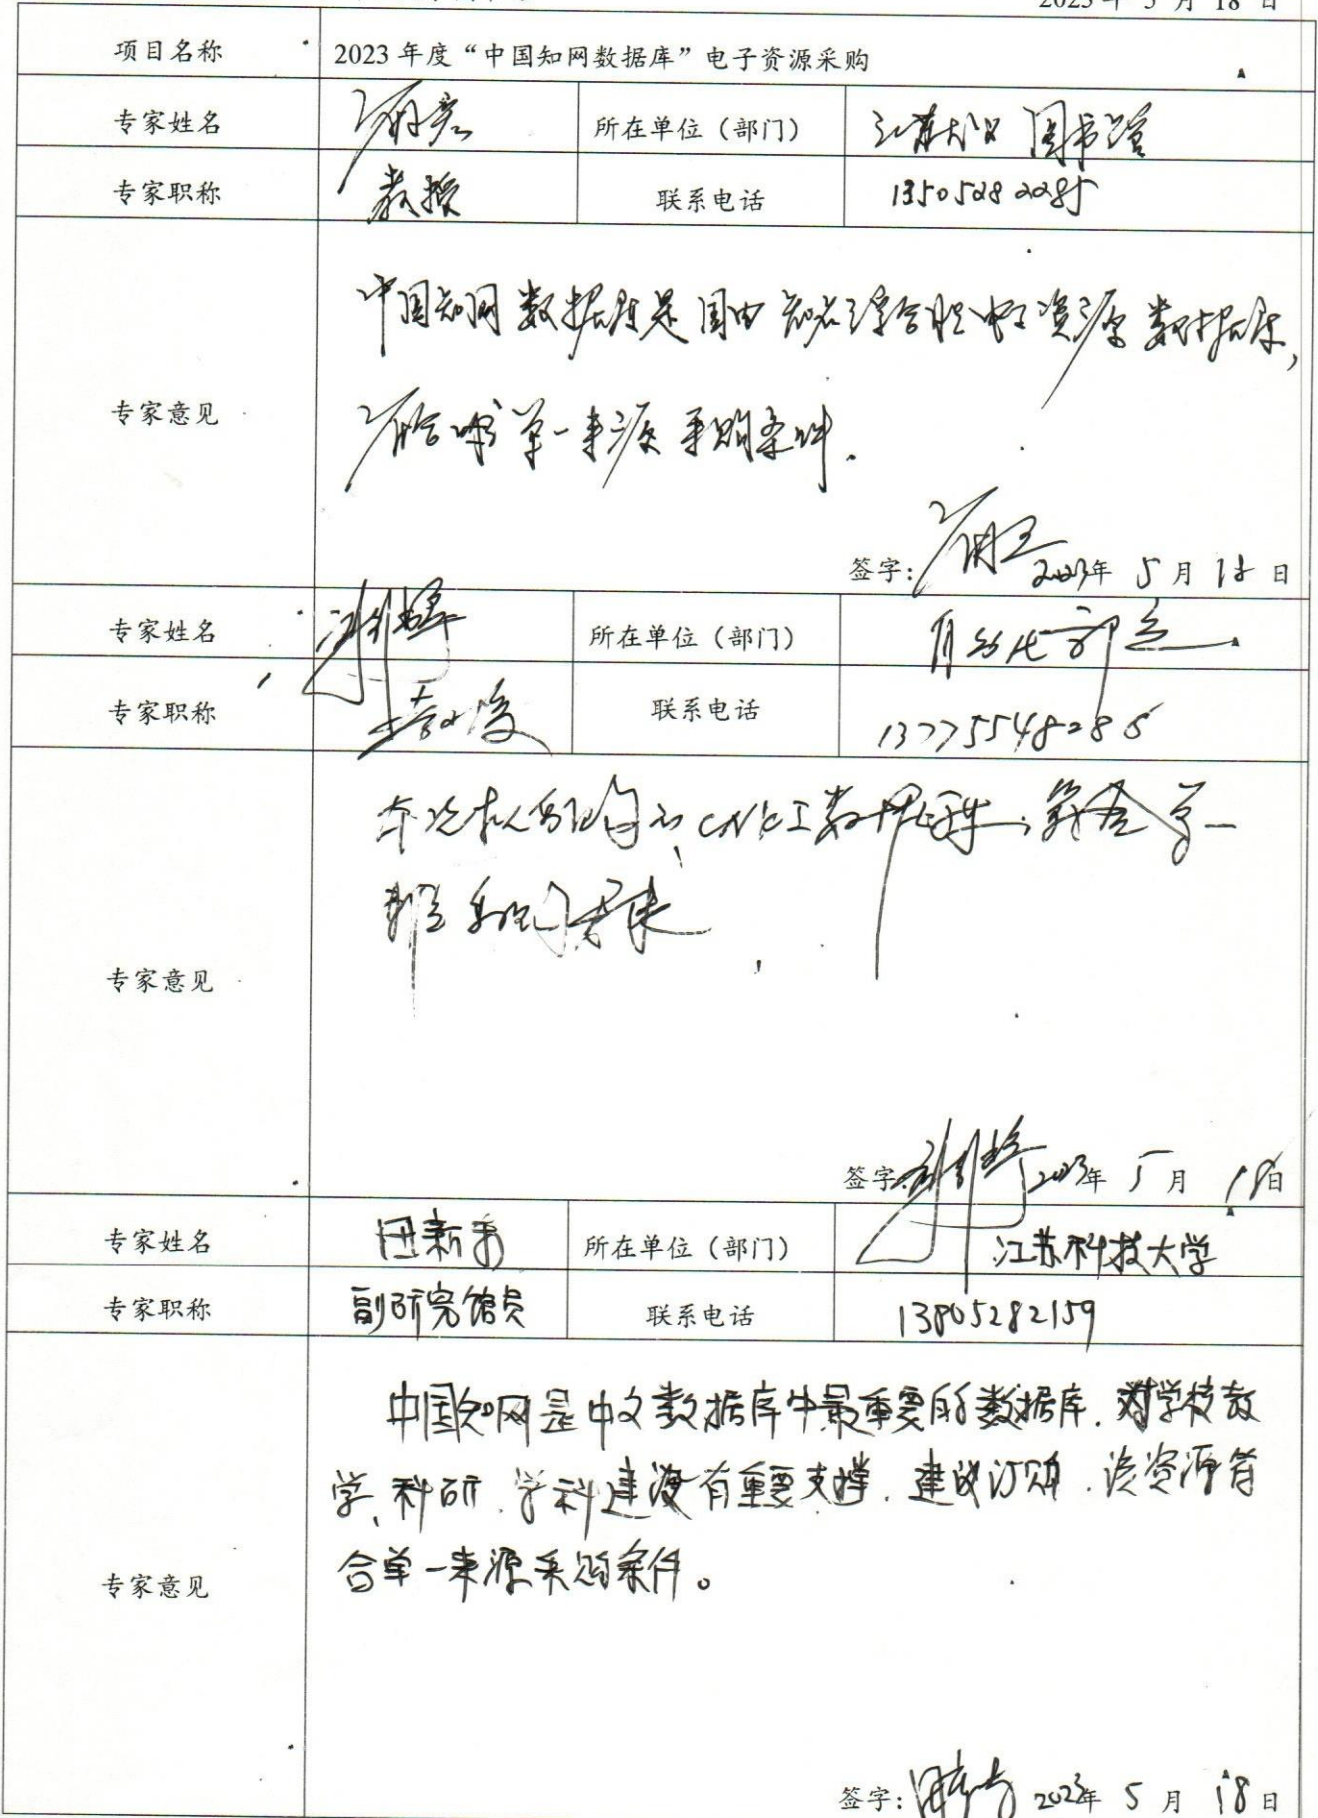 2023 年 5 月 18 日
项目名称 2023 年度“中国知网数据库”电子资源采购
专家姓名 所在单位（部门） 江苏大学 图书馆
专家职称 教授 联系电话 13505282285
中国知网数据库是国内知名综合性电子资源数据库,
专家意见
符合单一来源采购条件.
签字: 2023年 5 月 18 日
专家姓名 所在单位（部门）
专家职称 教授 联系电话 13775548286
CNKI数据库, 符合单一
采购要求
专家意见
签字: 2023年 5 月 18日
专家姓名 田新 所在单位（部门） 江苏科技大学
专家职称 副研究馆员 联系电话 13805282159
中国知网是中文数据库中最重要的数据库. 对学校教
学、科研、学科建设有重要支撑. 建议订购. 该资源符
合单一来源采购条件。
专家意见
签字: 2023年 5 月 18日